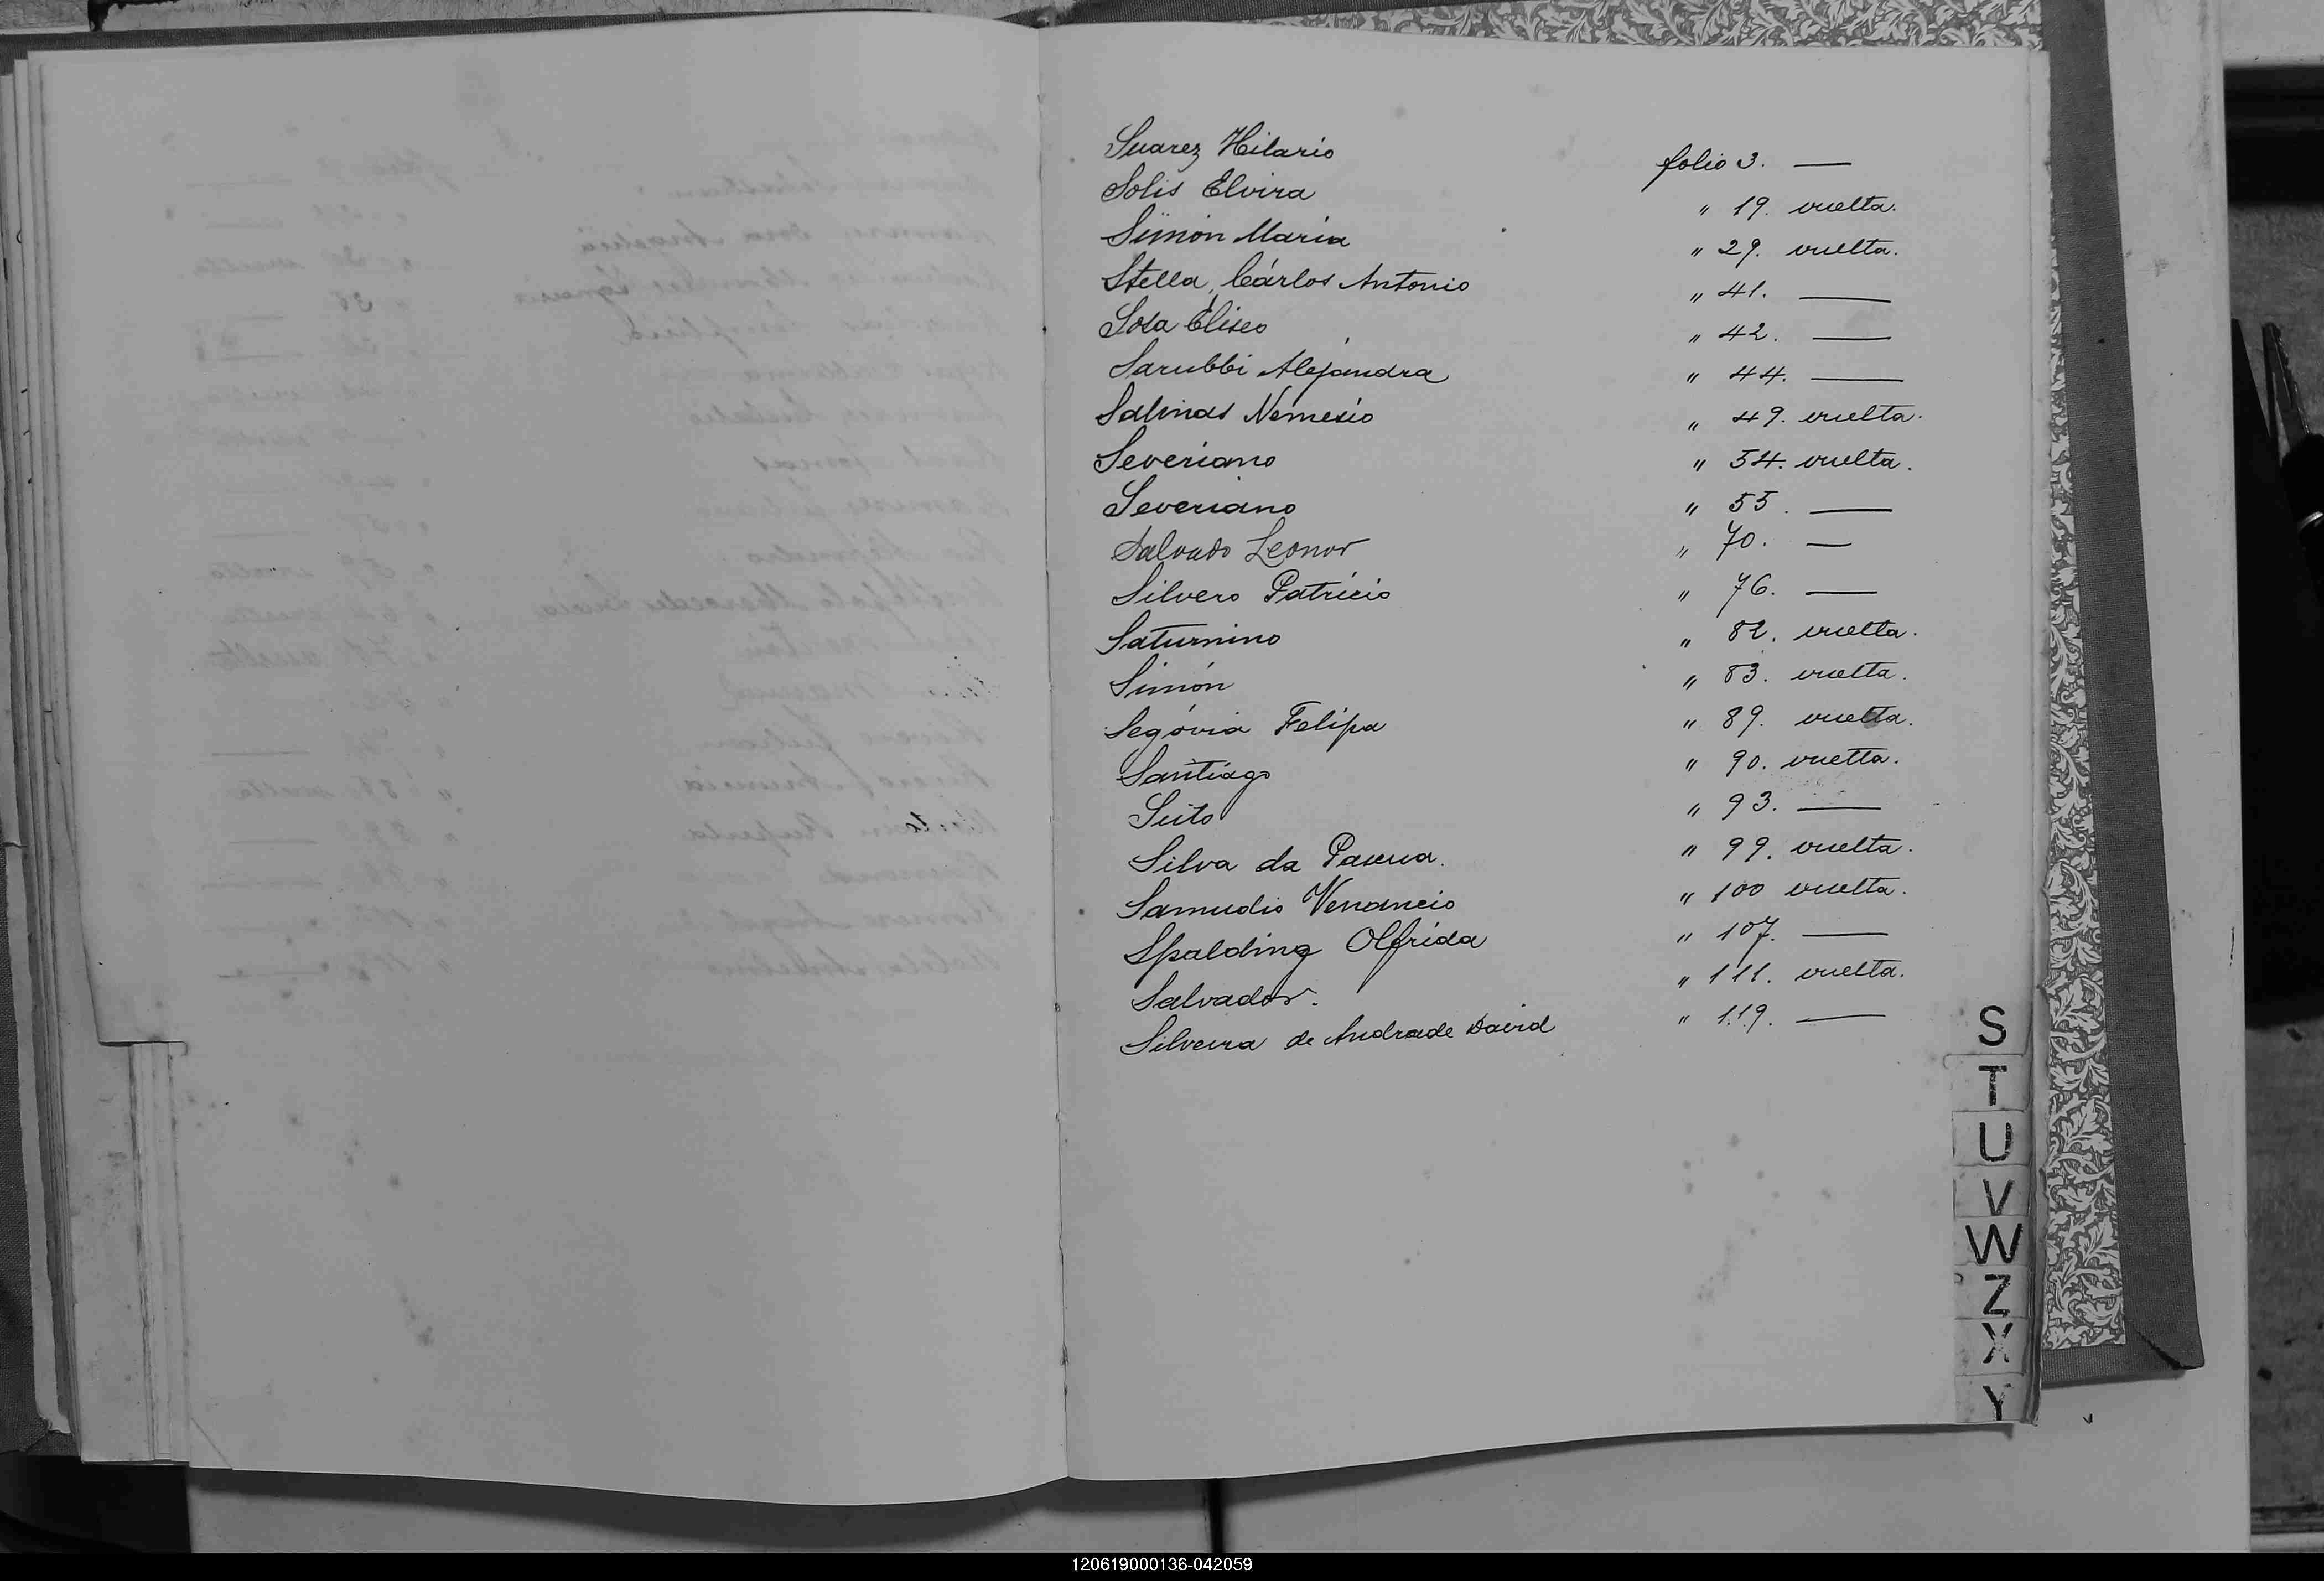 Suarez Hilario folio 3. —
Solis Elvira " 19. vuelta.
Simón María " 29. vuelta.
Stella, Cárlos Antonio " 41. —
Sosa Eliseo " 42. —
Sarubbi Alejandra " 44. —
Salinas Nemesio " 49. vuelta.
Severiano " 54. vuelta.
Severiano " 55. —
Salvado Leonor " 70. —
Silvero Patricio " 76. —
Saturnino " 82. vuelta.
Simón " 83. vuelta.
Segóvia Felipa " 89. vuelta.
Santiago " 90. vuelta.
" 93. —
Silva da Pascua. " 99. vuelta.
Samudio Venancio " 100 vuelta.
Spalding Olfrida " 107. —
Salvador. " 111. vuelta.
Silveira de Andrade David " 119. —
S
T
U
V
W
Z
X
Y
120619000136-042059